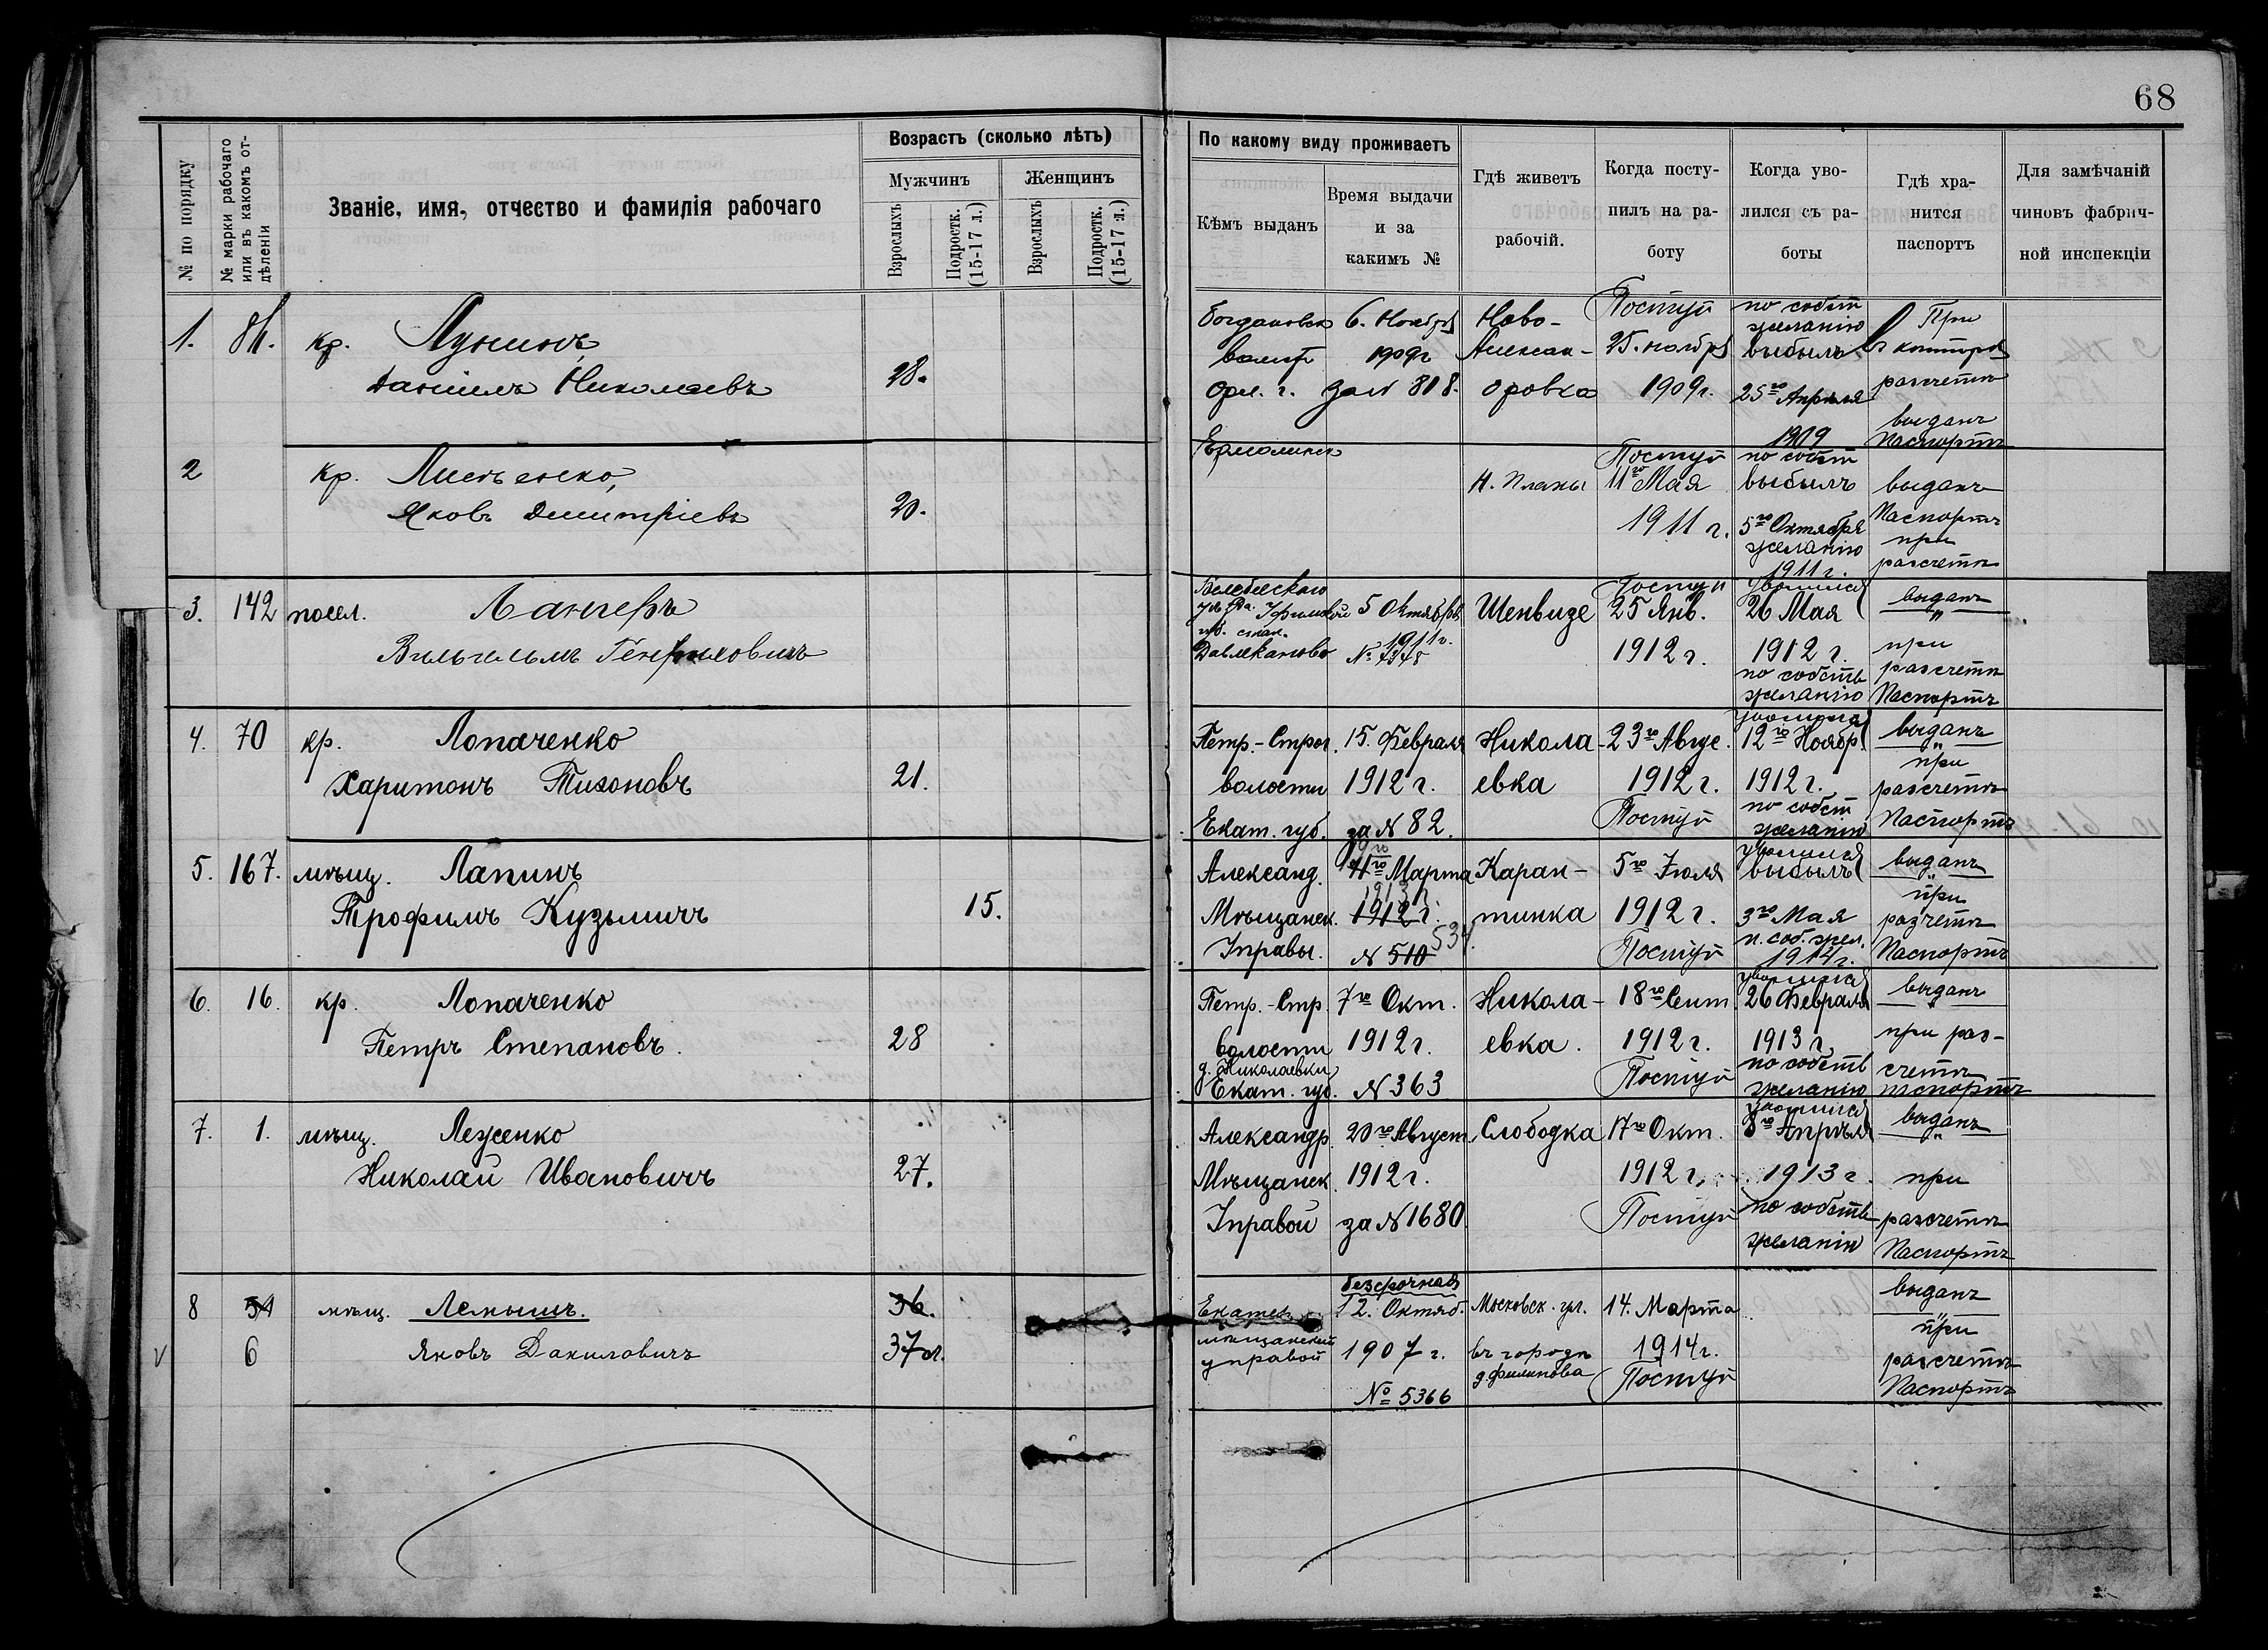 68
№ по порядку
№ марки рабочаго или въ какомъ отдѣленіи
Званіе, имя, отчество и фамилія рабочаго
Возрастъ (сколько лѣтъ)
Мужчинъ
Женщинъ
Взрослыхъ
Подростк. (15-17 л.)
Взрослыхъ
Подростк. (15-17 л.)
По какому виду проживаетъ
Кѣмъ выданъ
Время выдачи и за какимъ №
Гдѣ живетъ рабочій.
Когда поступилъ на работу
Когда уволился съ работы
Гдѣ хранится паспортъ
Для замѣчаній чиновъ фабричной инспекціи
1.
кр.
Даніилъ Николаевъ
28.
6. Ноября
1909г
за № 818.
Ново-
Алексан-
дровка
Поступ
25. ноября
1909г.
по собст
желанію
выбылъ
25го Апрѣля
1909
При
конторѣ
разсчетѣ
выданъ
Паспортъ
2
кр.
Яковъ Димитріевъ
20.
Н. Планы
Поступ
11го Мая
1911 г.
по собст
выбылъ
5го Октября
желанію
1911 г.
выданъ
Паспортъ
при
разсчетѣ
3. 142 посел. Лангеръ
Вильгельмъ Генриховичъ
Белебеского
Уфимской
губ. стан.
Давлеканово
5 Октября
1911г.
№ 7378
Шенвизе
Поступ
25 Янв.
1912 г.
уволился
26 Мая
1912 г.
по собств
желанію
выданъ
при
разсчетѣ
Паспортъ
4. 70 кр. Лопаченко
Харитонъ Тихоновъ
21.
Петр.-Строг.
волости
Екат. губ.
15. Февраля
1912 г.
за № 82.
Никола-
евка
23го Авгус.
1912 г.
Поступ
уволился
12го Ноябр
1912 г.
по собст
желанію
выданъ
при
разсчетѣ
Паспортъ
5. 167. мѣщ. Лапинъ
Трофимъ Кузьмичъ
15.
Александ.
Мѣщанск.
Управы.
Марта
1913
1912 г.
№ 510 534.
Каран-
тинка
5го Іюля
1912 г.
Поступ
уволился
выбылъ
3го Мая
п. соб. жел.
1914 г.
выданъ
при
разчетѣ
Паспортъ
6. 16. кр. Лопаченко
Петръ Степановъ.
28
Петр.-Стр.
волости
д. Николаевки
Екат. губ.
7го Окт.
1912 г.
№ 363
Никола-
евка.
18го Сент.
1912 г.
Поступ
уволился
26 Февраля
1913 г.
по собств
желанію
выданъ
при раз-
счетѣ
паспортъ
7. 1. мѣщ. Леженко
Николай Ивановичъ
27.
Александр.
Мѣщанск.
Управой
20го Август.
1912 г.
за № 1680
Слободка
17го Окт.
1912 г.
Поступ
уволился
8го Апрѣля
1913 г.
по собств
желанію
выданъ
при
разсчетѣ
Паспортъ
8 мѣщ.
6 Яковъ Даниловичъ
36.
37 л.
Екатер.
мѣщанской
управой
безсрочная
12. Октяб.
1907 г.
№ 5366
Московск. ул.
въ городѣ
д. Филипова
14. Марта
1914 г.
Поступ
выданъ
при
разсчетѣ
Паспортъ